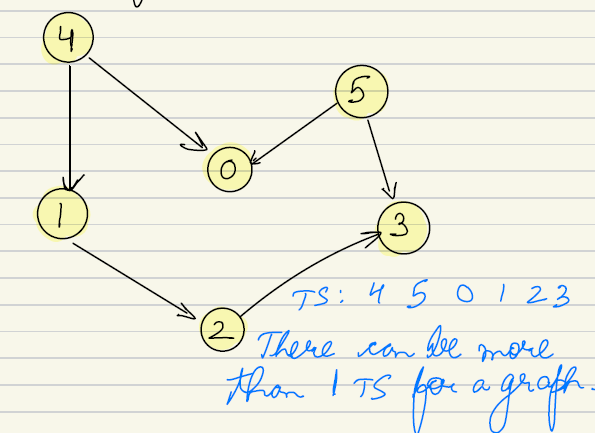 4
5
0
1
3
2
TS: 4 5 0 1 2 3
There can be more
than 1 TS for a graph.